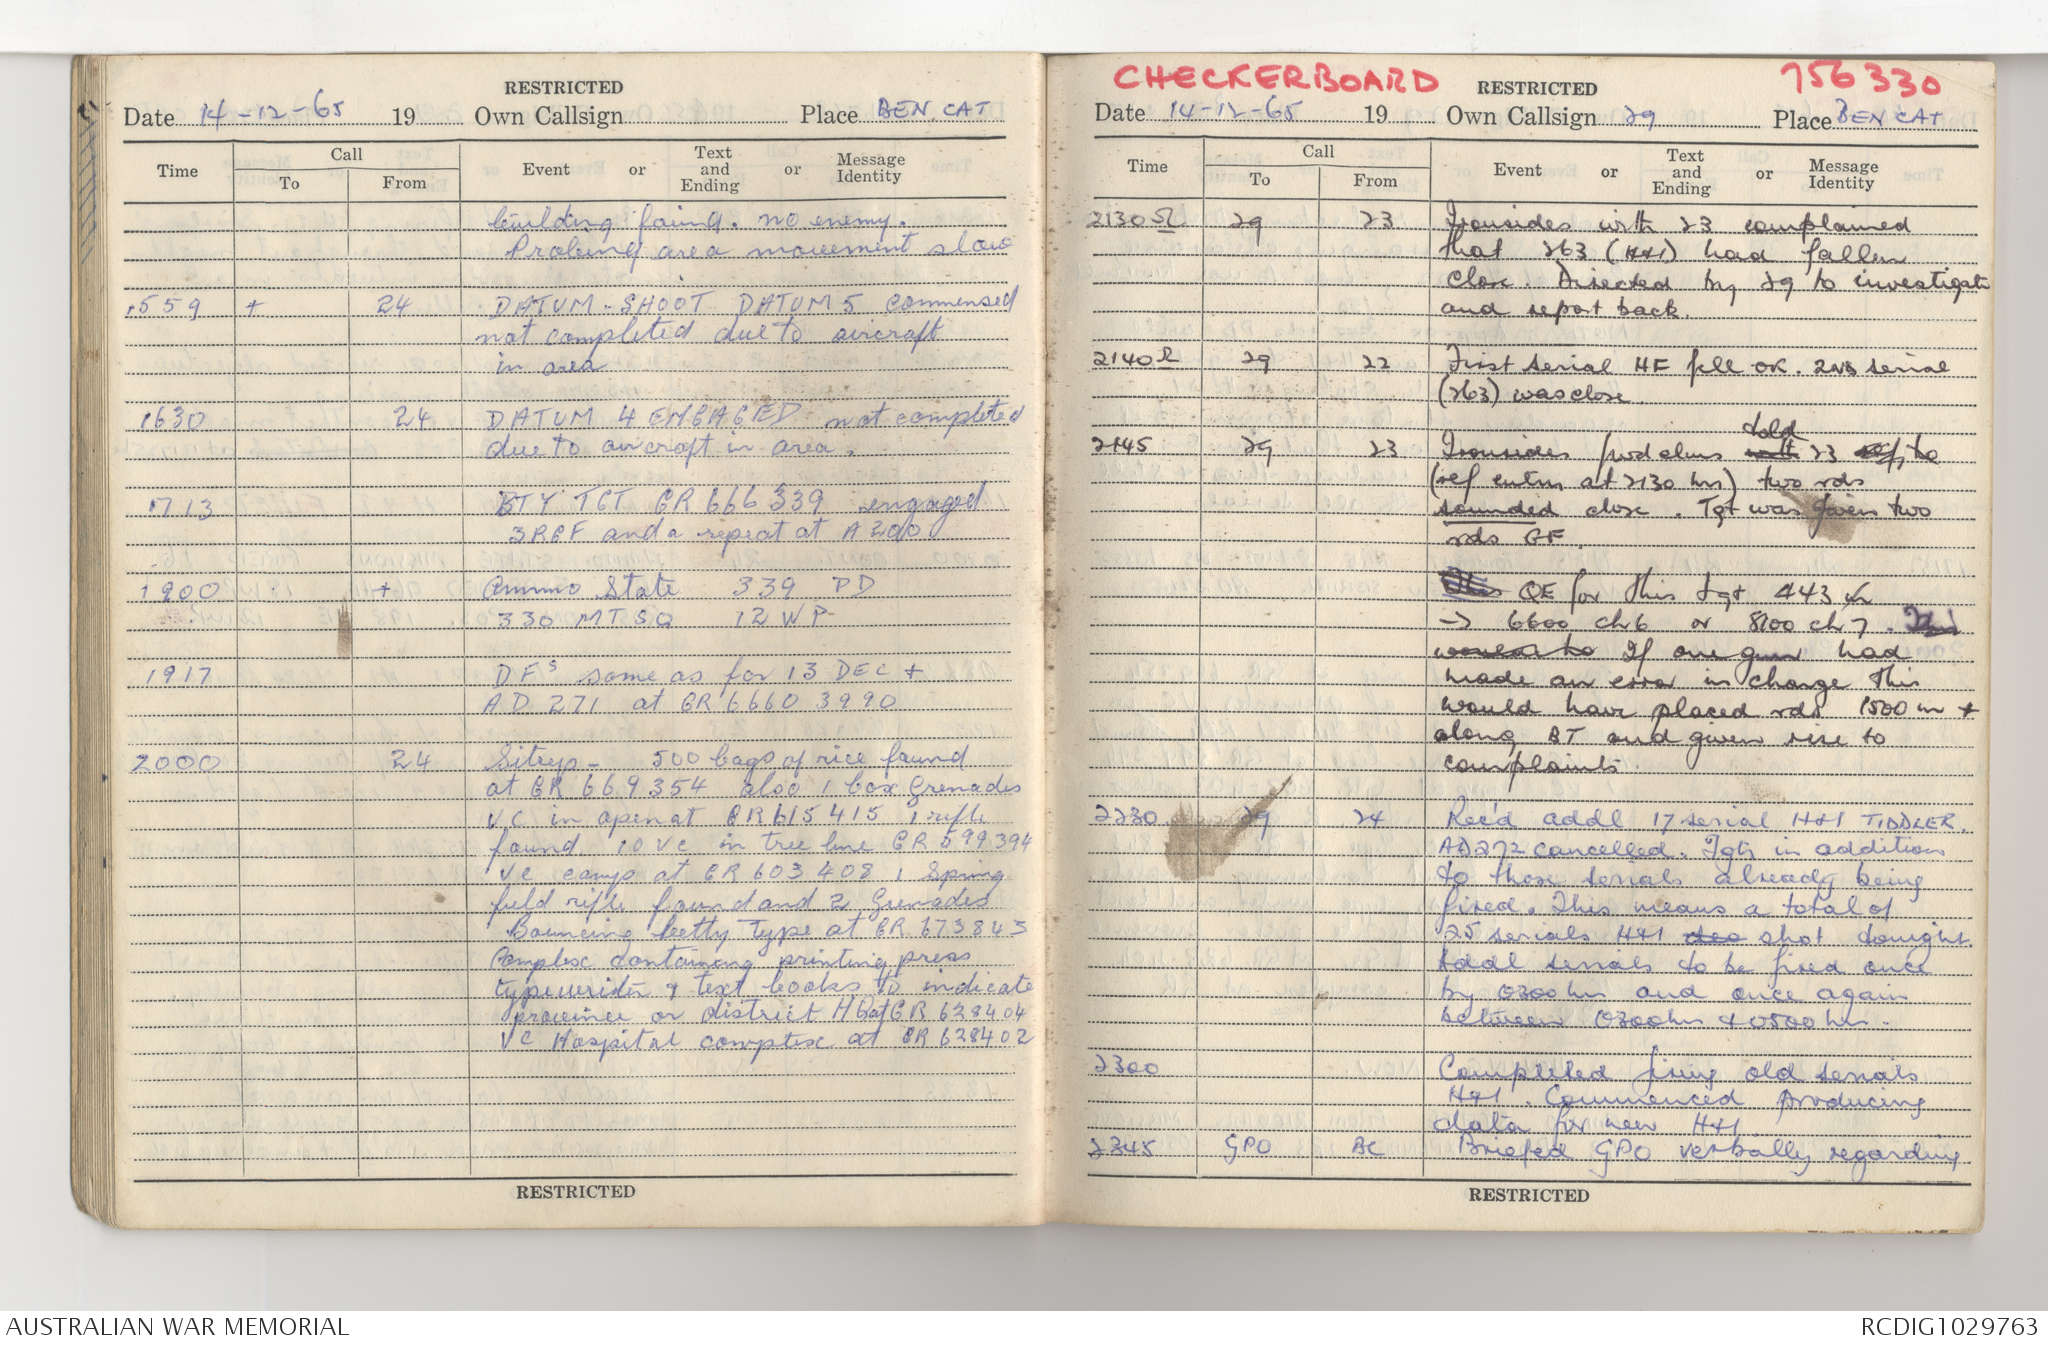 RESTRICTED
Date 14-12-65 19 Own Callsign Place BEN CAT
Time Call To From Event or Text and Ending or Message Identity
building found. no enemy.
Probing area movement slow
1559 + 24 DATUM-SHOOT DATUM 5 commensed
not completed due to aircraft
in area
1630 24 DATUM 4 ENGAGED not completed
due to aircraft in area.
1713 BTY TGT GR 666 339 engaged
3RGF and a repeat at A200
1900 + Ammo State 339 PD
330 MTSQ 12 WP
1917 DFs same as for 13 DEC +
AD 271 at GR 6660 3990
2000 24 Sitreps - 500 bags of rice found
at GR 669354 also 1 box Grenades
VC in open at GR 615 415 1 rifle
found. 10 VC in tree line GR 599394
VC camp at GR 603 408 1 Spring
field rifle found and 2 Grenades
Bouncing betty type at GR 673843
Complex containing printing press
typewriter & text books to indicate
province or district HQ at GR 628404
VC Hospital complex at GR 628402
RESTRICTED
CHECKERBOARD RESTRICTED 756330
Date 14-12-65 19 Own Callsign 29 Place BEN CAT
Time Call To From Event or Text and Ending or Message Identity
2130 29 23 Ironsides with 23 complained
that 263 (H+I) had fallen
close. Directed by 29 to investigate
and report back.
2140 29 22 First serial HF fell OK. 2ND serial
(263) was close.
told
2145 29 23 Ironsides fwd elms with 23
(ref entry at 2130 hrs) two rds
sounded close. Tgt was given two
rds GF.
This QE for this tgt 443 m
→ 6600 ch6 or 8100 ch7. This
would to If one gun had
made an error in charge this
would have placed rds 1500 m +
along BT and given rise to
complaints.
2230 29 24 Rec'd addl 17 serial H+I TIDDLER.
AD272 cancelled. Tgts in addition
to those serials already being
fired. This means a total of
25 serials H+I shot tonight.
Addl serials to be fired once
by 0300 hrs and once again
between 0300 hrs & 0500 hrs.
2300 Completed firing old serials
H+I. Commenced producing
data for new H+I
2345 GPO BC Briefed GPO verbally regarding
RESTRICTED
AUSTRALIAN WAR MEMORIAL RCDIG1029763